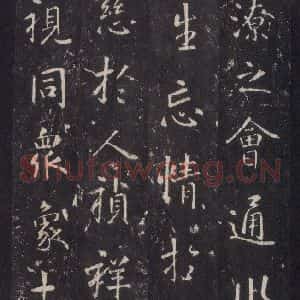 之會通
生忘情
慈於人積祥
視同眾象
Shufawang.CN